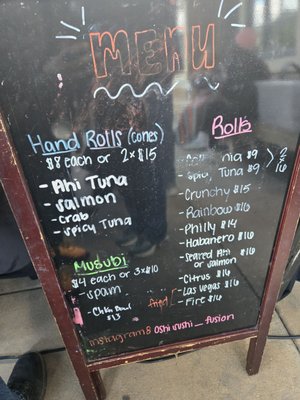 MENU
Hand Rolls (cones)
$8 each or 2x$15
- Ahi Tuna
- Salmon
- Crab
- Spicy Tuna
Musubi
$4 each or 3x$10
- Spam
$13
Rolls
$9
- Spicy Tuna $9
- Crunchy $15
- Rainbow $16
- Philly $14
- Habanero $16
- Seared Ahi
or Salmon $16
- Citrus $16
fried
- Las Vegas $16
- Fire $16